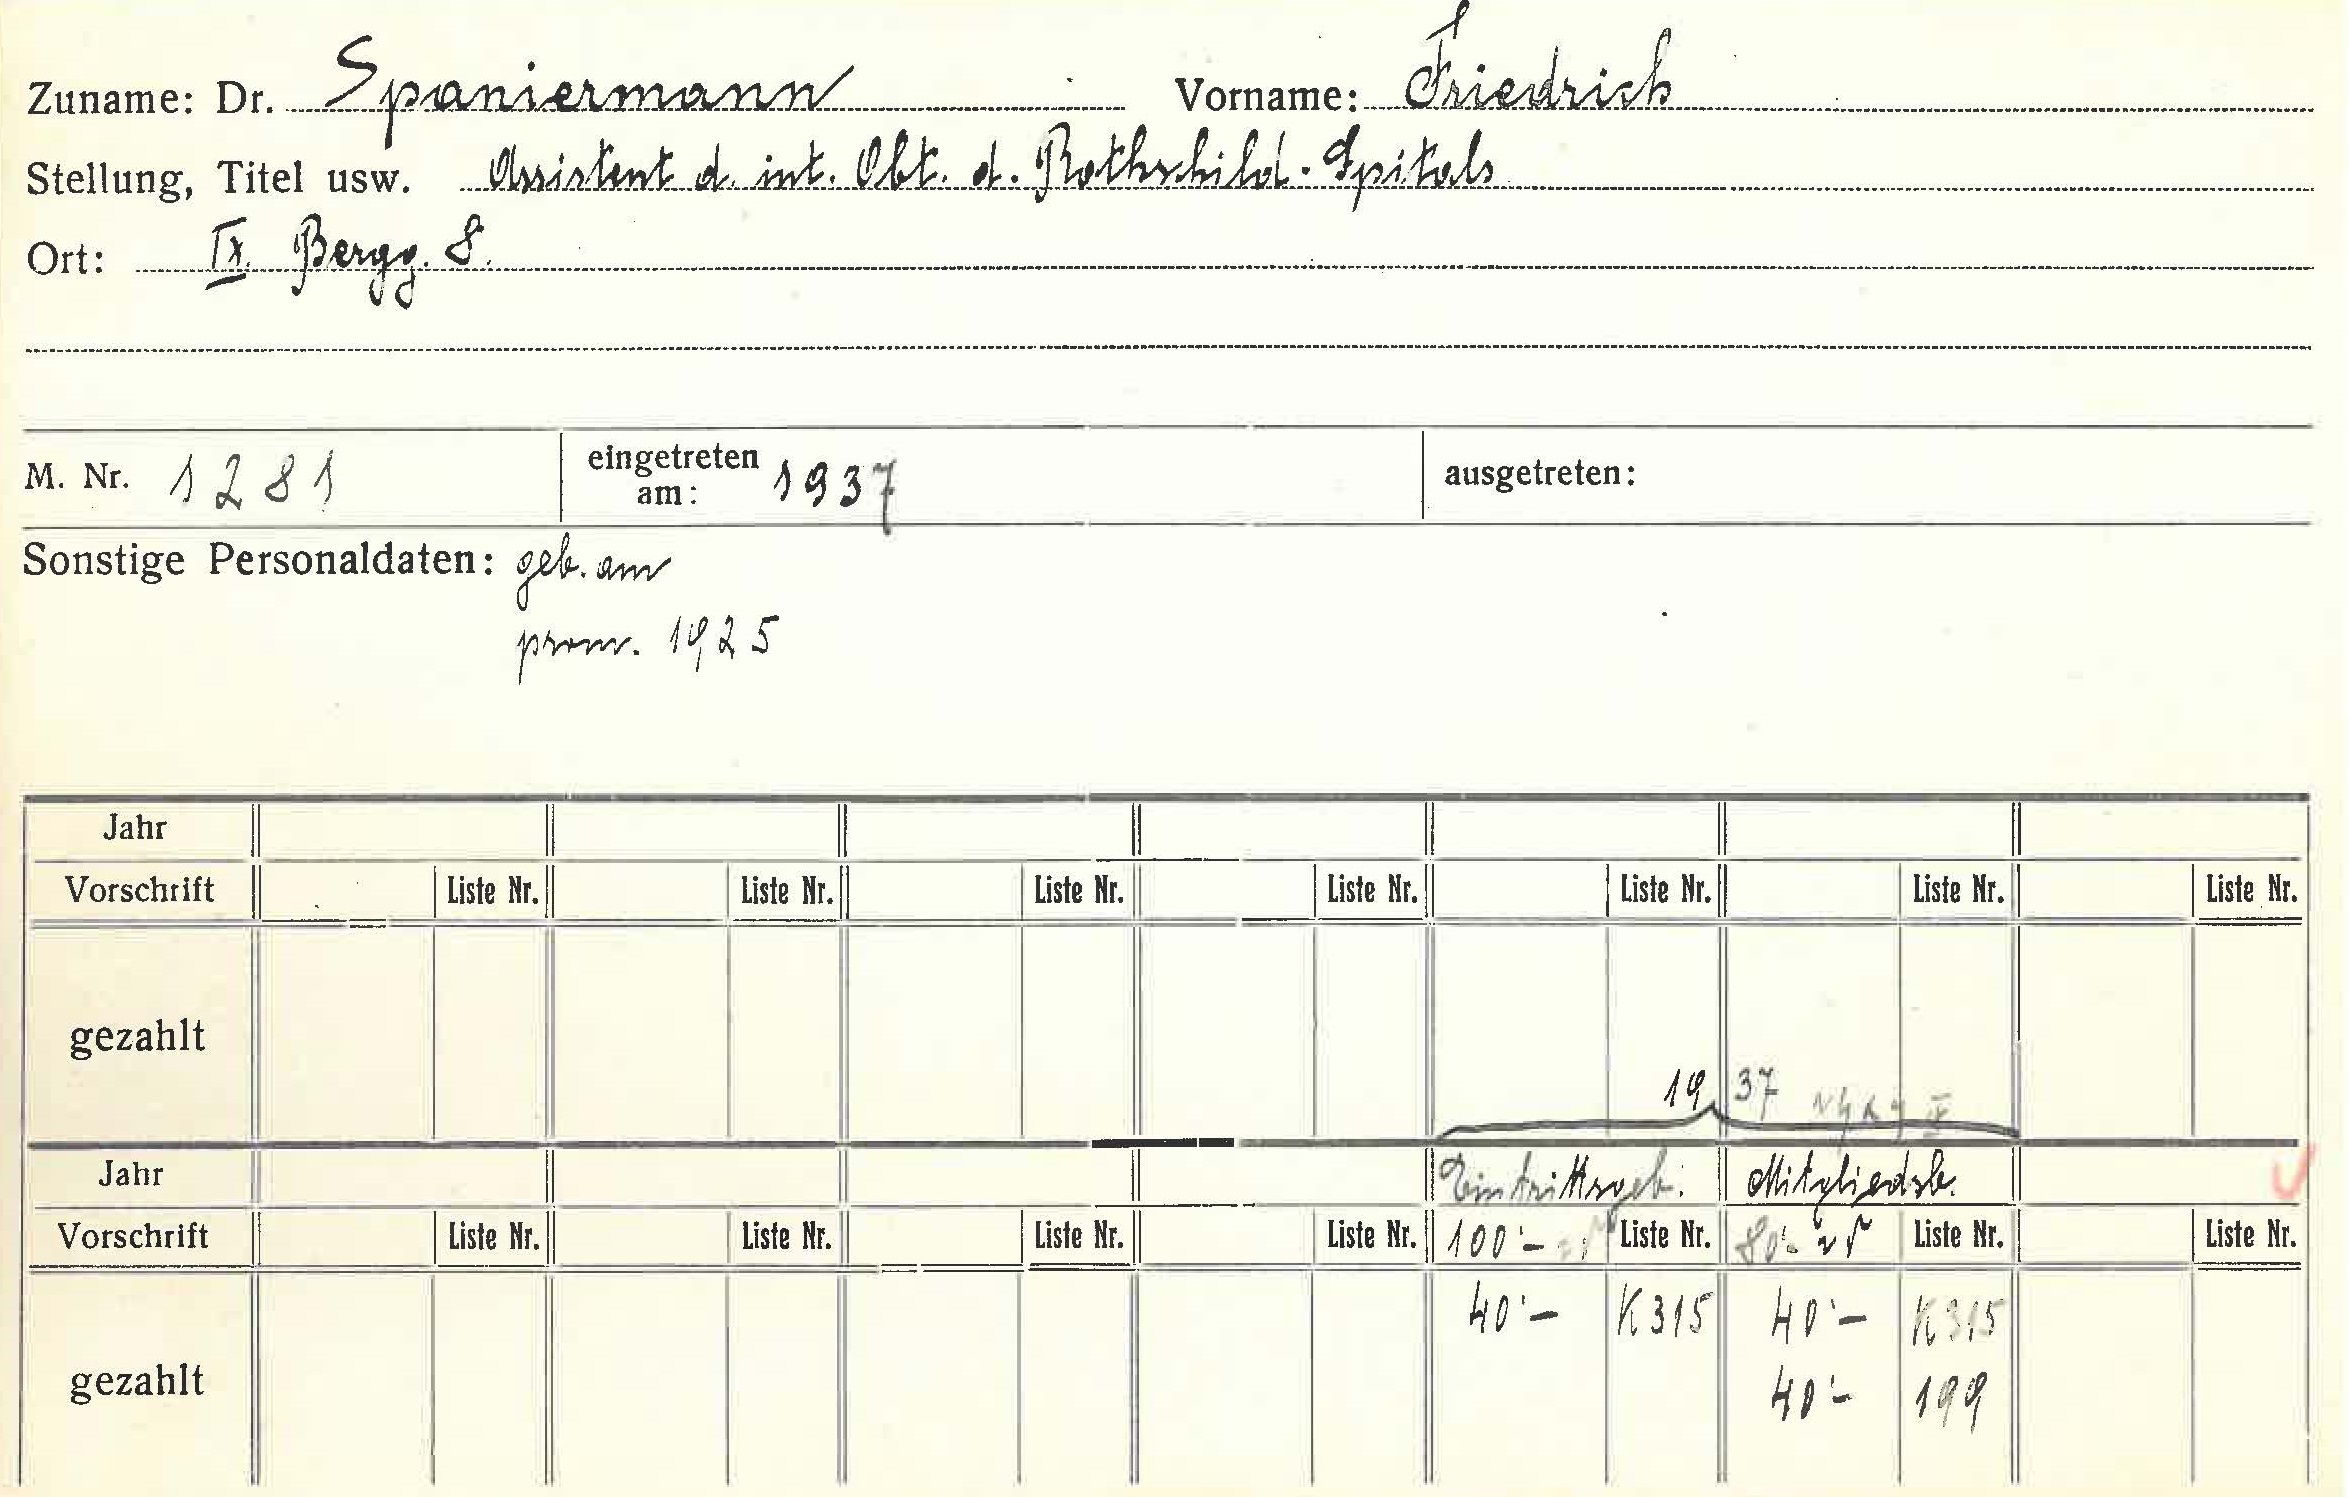 Zuname: Dr. Spaniermann Vorname: Friedrich
Stellung, Titel usw. Assistent d. int. Abt. d. Rothschild-Spitals
Ort: IX. Bergg. 8.
M. Nr. 1281 eingetreten am: 1937 ausgetreten:
Sonstige Personaldaten: geb. am
prom. 1925
Jahr
Vorschrift Liste Nr. Liste Nr. Liste Nr. Liste Nr. Liste Nr. Liste Nr. Liste Nr.
gezahlt
1937
Jahr Eintrittsgeb. Mitgliedsb.
Vorschrift Liste Nr. Liste Nr. Liste Nr. Liste Nr. 100'- Liste Nr. 80'- Liste Nr. Liste Nr.
40'- K315 40'- K315
gezahlt 40'- 199